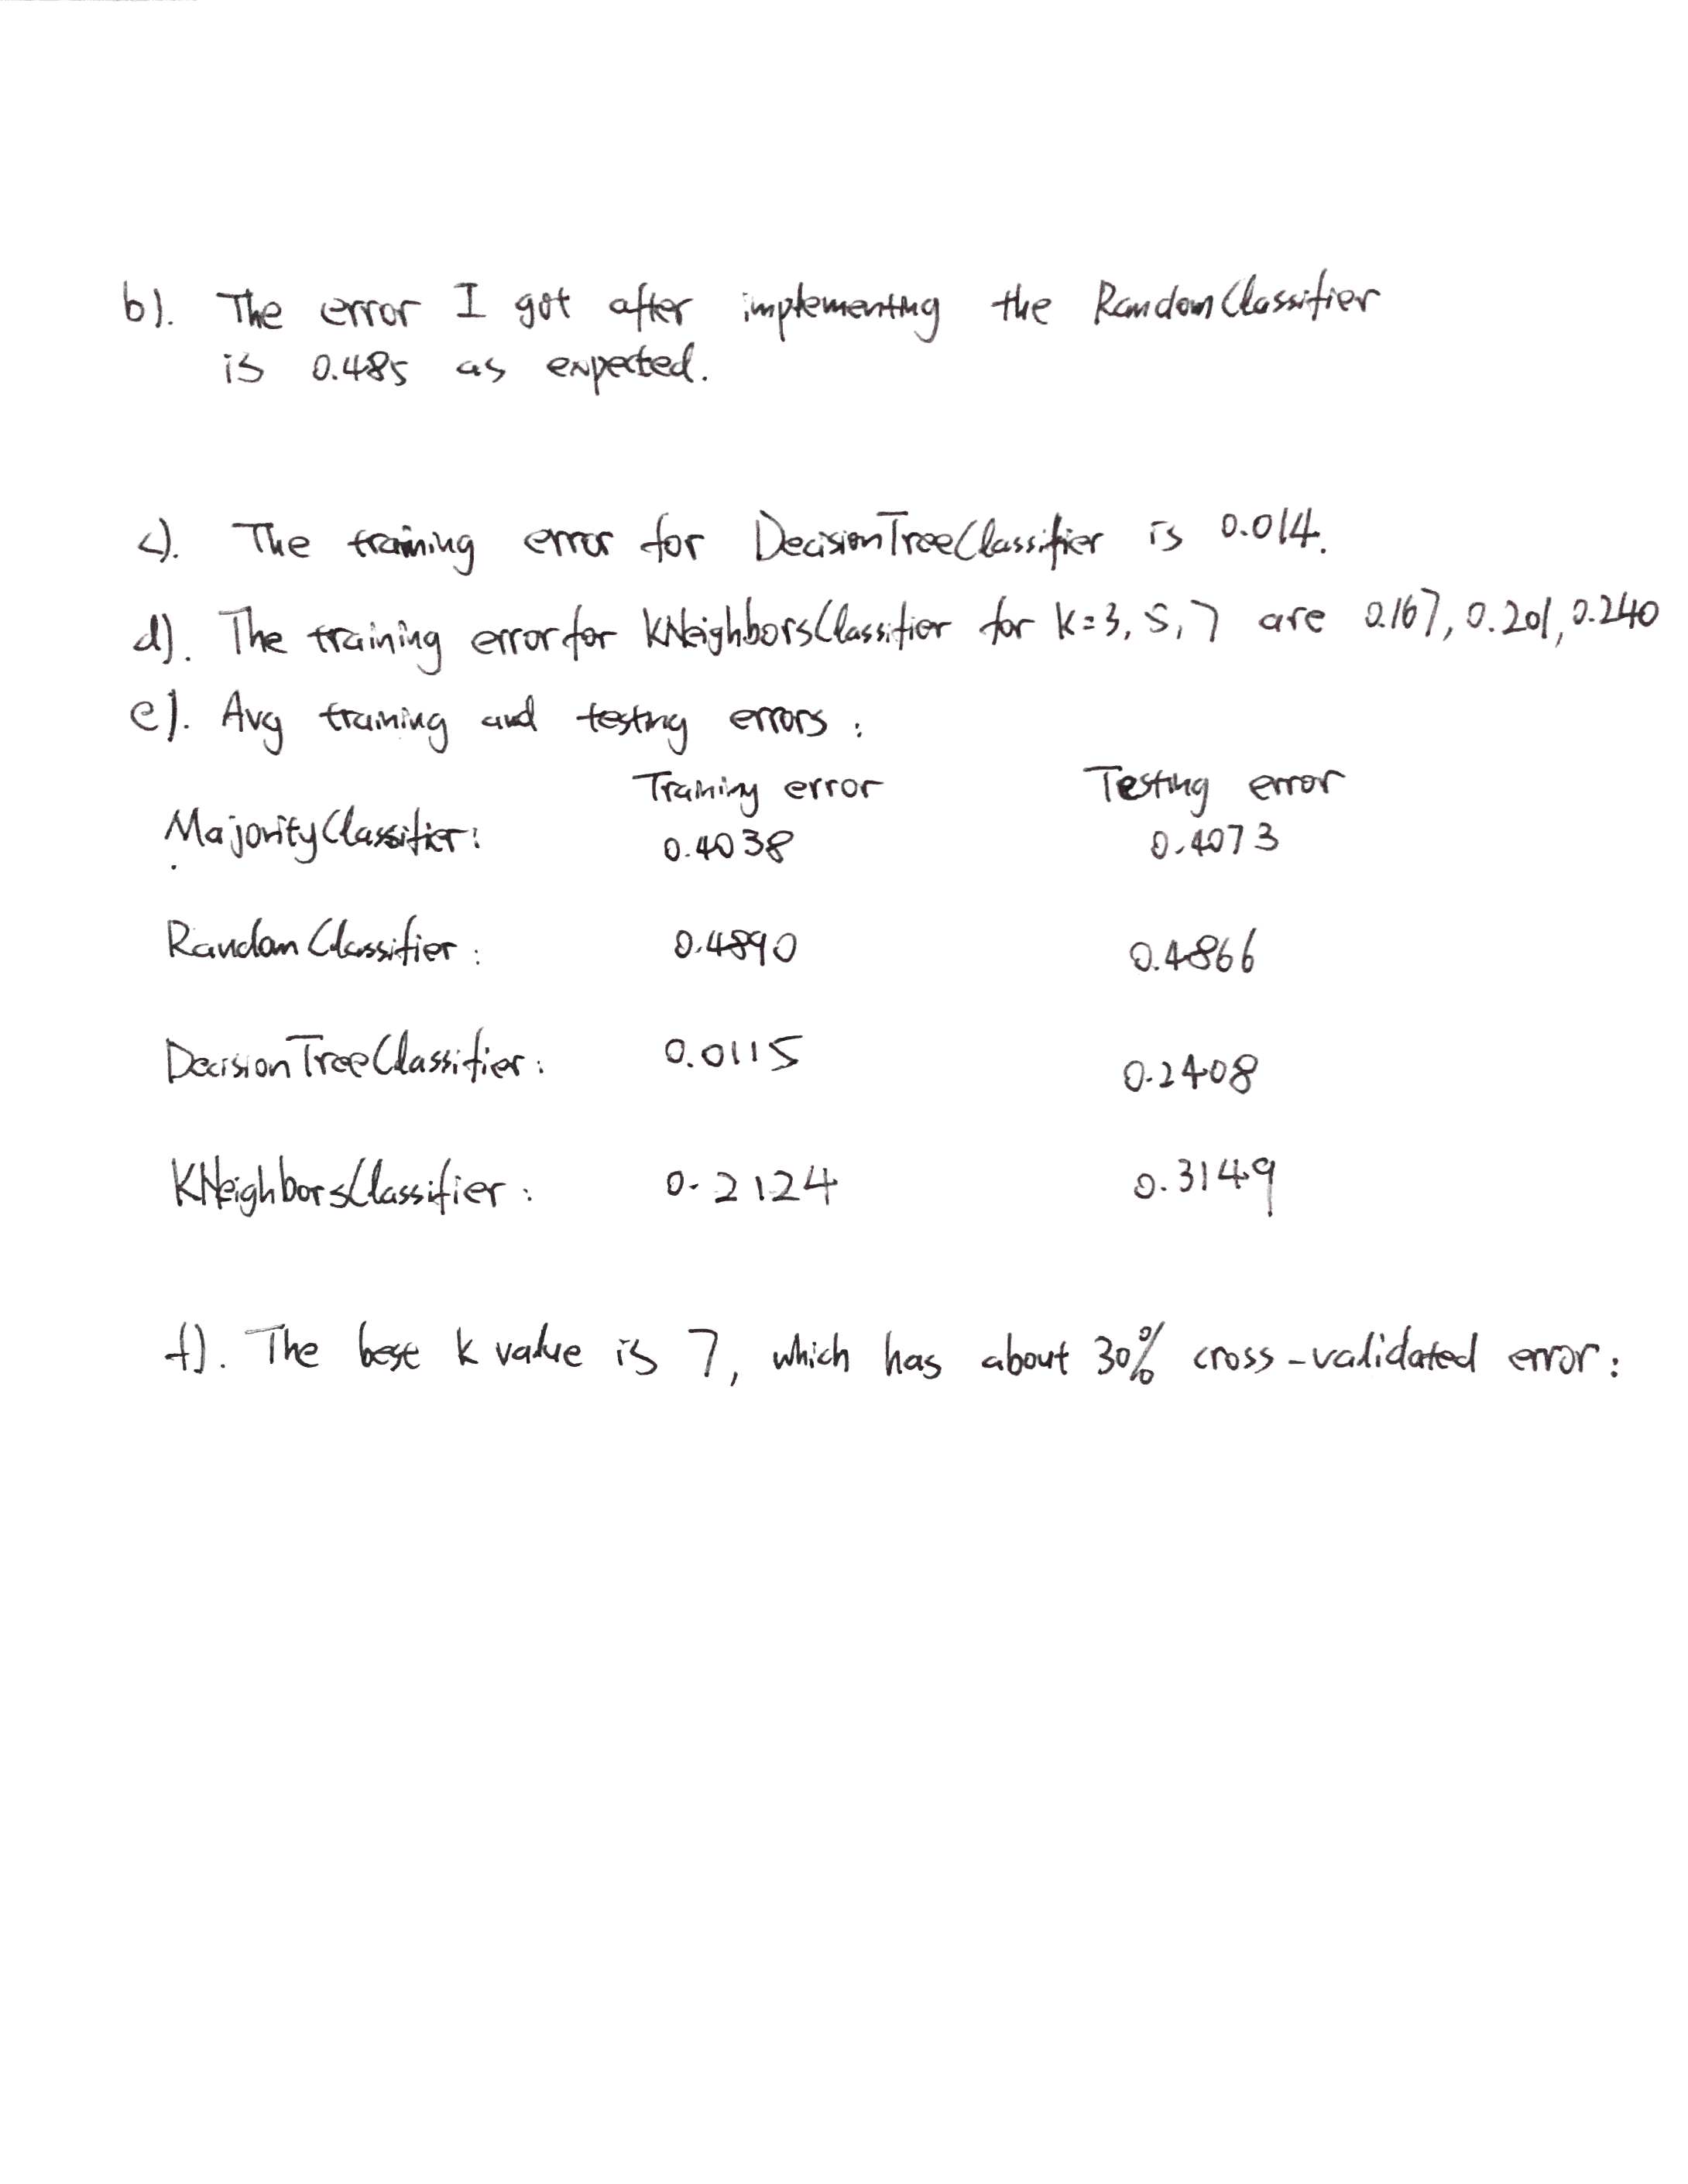 b). The error I got after implementing the RandomClassifier
is 0.485 as expected.
c). The training error for DecisionTreeClassifier is 0.014.
d). The training error for KNeighborsClassifier for K=3, 5, 7 are 0.167, 0.201, 0.240
e). Avg training and testing errors :
Training error Testing error
MajorityClassifier: 0.4038 0.4073
RandomClassifier : 0.4890 0.4866
DecisionTreeClassifier : 0.0115 0.2408
KNeighborsClassifier : 0.2124 0.3149
f). The best k value is 7, which has about 30% cross-validated error :